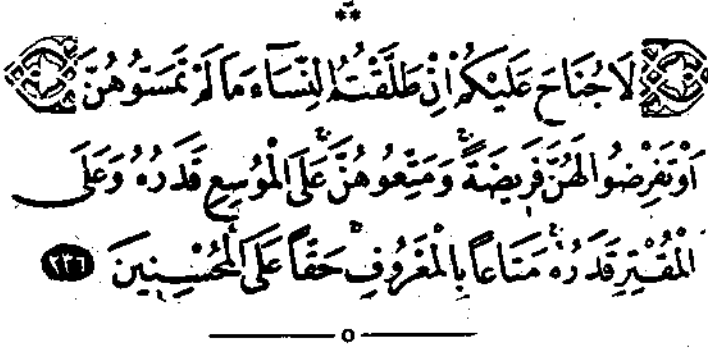 لَا جُنَاحَ عَلَيْكُمْ اِنْ طَلَّقْتُمُ النِّسَٓاءَ مَا لَمْ تَمَسُّوهُنَّ
اَوْ تَفْرِضُوا لَهُنَّ فَر۪يضَةًۚ وَمَتِّعُوهُنَّۚ عَلَى الْمُوسِعِ قَدَرُهُ وَعَلَى
الْمُقْتِرِ قَدَرُهُۚ مَتَاعًا بِالْمَعْرُوفِۚ حَقًّا عَلَى الْمُحْسِن۪ينَ ٢٣٦